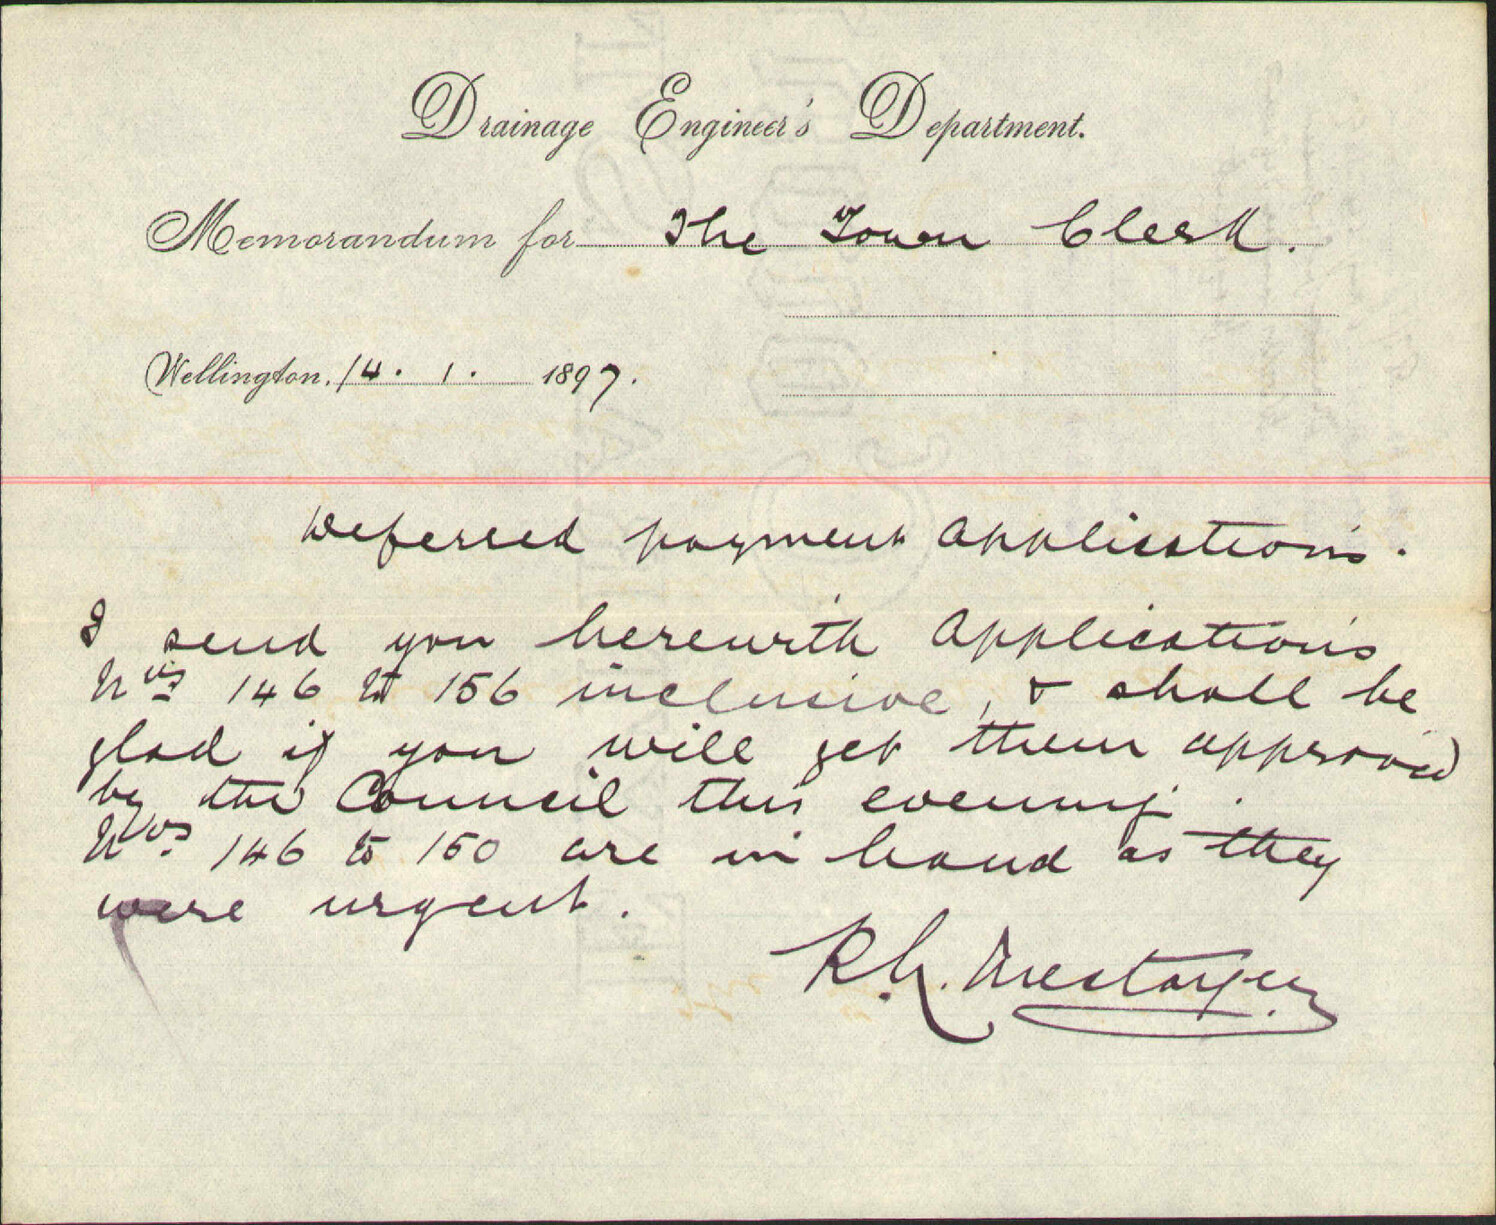 Drainage Engineer's Department.
Memorandum for The Town Clerk.
Wellington. 14. 1. 1897.
Deferred payment Applications.
I send you herewith Applications
Nos 146 to 156 inclusive, & shall be
glad if you will get them approved
by the Council this evening.
Nos. 146 to 150 are in hand as they
were urgent.
R.L. Mestayer